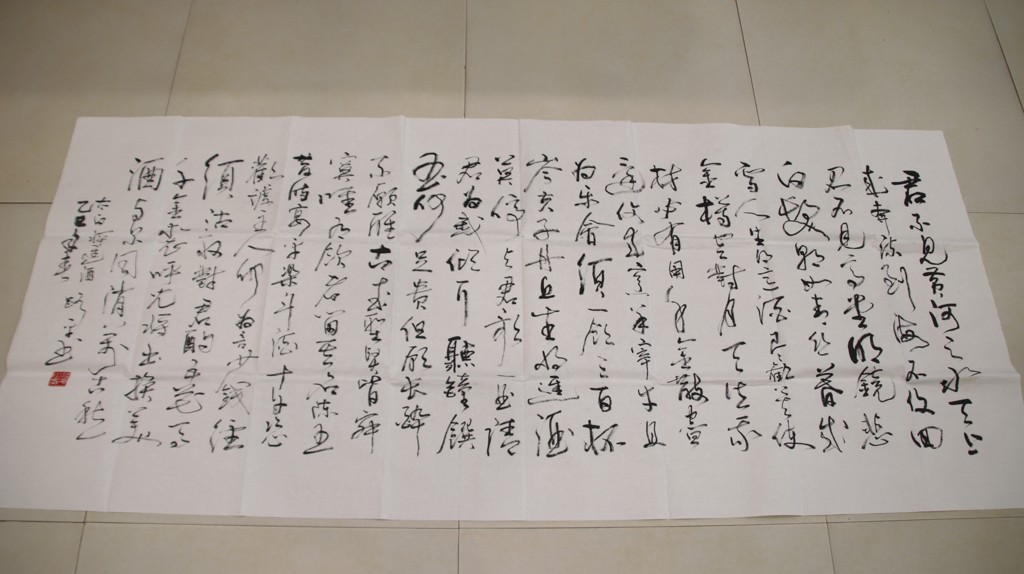 君不見黃河之水天上
來奔流到海不復回
君不見高堂明鏡悲
白髮朝如青絲暮成
雪人生得意須盡歡莫使
金樽空對月天生我
材必有用千金散盡
還復來烹羊宰牛且
為樂會須一飲三百杯
岑夫子丹丘生將進酒
莫停與君歌一曲請
君為我傾耳聽鐘饌
玉何足貴但願長醉
不願醒古來聖賢皆寂
寞唯有飲者留其名陳王
昔時宴平樂斗酒十千恣
歡謔主人何為言少錢徑
須沽取對君酌五花馬
千金裘呼兒將出換美
酒與爾同銷萬古愁
乙巳